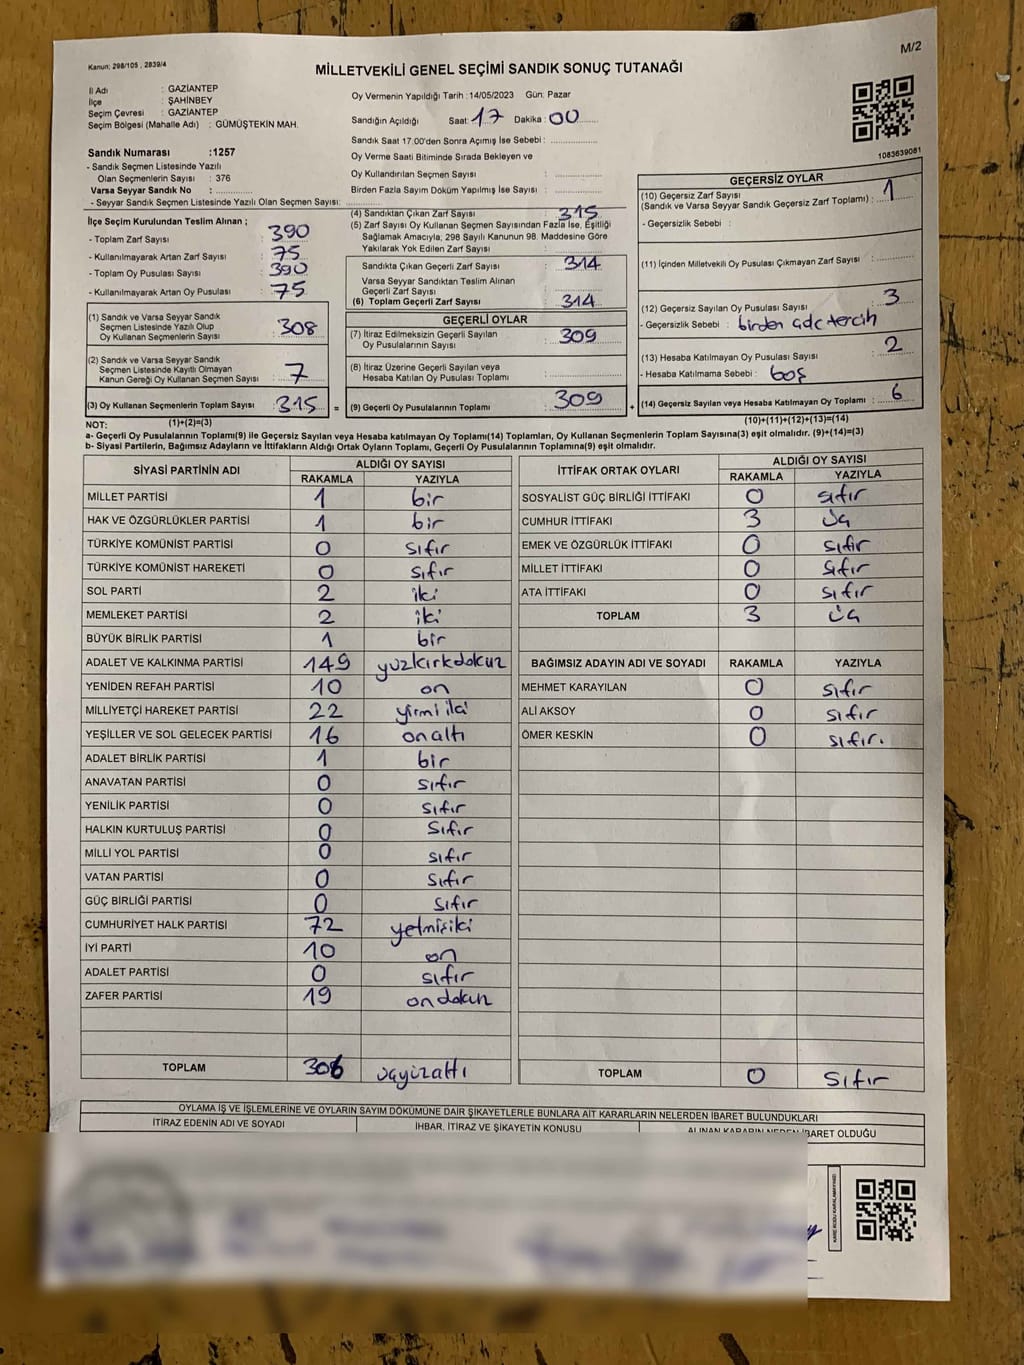 M/2
Kanun: 298/105 , 2839/4
MİLLETVEKİLİ GENEL SEÇİMİ SANDIK SONUÇ TUTANAĞI
İl Adı : GAZİANTEP
İlçe : ŞAHİNBEY
Seçim Çevresi : GAZİANTEP
Seçim Bölgesi (Mahalle Adı) : GÜMÜŞTEKİN MAH.
Sandık Numarası :1257
- Sandık Seçmen Listesinde Yazılı
Olan Seçmenlerin Sayısı : 376
Varsa Seyyar Sandık No : ..............
- Seyyar Sandık Seçmen Listesinde Yazılı Olan Seçmen Sayısı: ..............
Oy Vermenin Yapıldığı Tarih :14/05/2023 Gün: Pazar
Sandığın Açıldığı Saat: 17 Dakika: 00
Sandık Saat 17.00'den Sonra Açımış İse Sebebi : ..............
Oy Verme Saati Bitiminde Sırada Bekleyen ve
Oy Kullandırılan Seçmen Sayısı : ..............
Birden Fazla Sayım Döküm Yapılmış İse Sayısı : ..............
1083639081
İlçe Seçim Kurulundan Teslim Alınan ;
- Toplam Zarf Sayısı : 390
- Kullanılmayarak Artan Zarf Sayısı : 75
- Toplam Oy Pusulası Sayısı : 390
- Kullanılmayarak Artan Oy Pusulası : 75
(1) Sandık ve Varsa Seyyar Sandık
Seçmen Listesinde Yazılı Olup
Oy Kullanan Seçmenlerin Sayısı : 308
(2) Sandık ve Varsa Seyyar Sandık
Seçmen Listesinde Kayıtlı Olmayan
Kanun Gereği Oy Kullanan Seçmen Sayısı : 7
(3) Oy Kullanan Seçmenlerin Toplam Sayısı : 315 =
(4) Sandıktan Çıkan Zarf Sayısı : 315
(5) Zarf Sayısı Oy Kullanan Seçmen Sayısından Fazla İse, Eşitliği
Sağlamak Amacıyla; 298 Sayılı Kanunun 98. Maddesine Göre
Yakılarak Yok Edilen Zarf Sayısı : ..............
Sandıkta Çıkan Geçerli Zarf Sayısı : 314
Varsa Seyyar Sandıktan Teslim Alınan
Geçerli Zarf Sayısı : ..............
(6) Toplam Geçerli Zarf Sayısı : 314
GEÇERLİ OYLAR
(7) İtiraz Edilmeksizin Geçerli Sayılan
Oy Pusulalarının Sayısı : 309
(8) İtiraz Üzerine Geçerli Sayılan veya
Hesaba Katılan Oy Pusulası Toplamı : ..............
(9) Geçerli Oy Pusulalarının Toplamı : 309 +
GEÇERSİZ OYLAR
(10) Geçersiz Zarf Sayısı
(Sandık ve Varsa Seyyar Sandık Geçersiz Zarf Toplamı) : 1
- Geçersizlik Sebebi :
(11) İçinden Milletvekili Oy Pusulası Çıkmayan Zarf Sayısı : ..............
(12) Geçersiz Sayılan Oy Pusulası Sayısı : 3
- Geçersizlik Sebebi : birden adc tercih
(13) Hesaba Katılmayan Oy Pusulası Sayısı : 2
- Hesaba Katılmama Sebebi : boş
(14) Geçersiz Sayılan veya Hesaba Katılmayan Oy Toplamı : 6
NOT: (1)+(2)=(3) (10)+(11)+(12)+(13)=(14)
a- Geçerli Oy Pusulalarının Toplamı(9) ile Geçersiz Sayılan veya Hesaba katılmayan Oy Toplamı(14) Toplamları, Oy Kullanan Seçmenlerin Toplam Sayısına(3) eşit olmalıdır. (9)+(14)=(3)
b- Siyasi Partilerin, Bağımsız Adayların ve İttifakların Aldığı Ortak Oyların Toplamı, Geçerli Oy Pusulalarının Toplamına(9) eşit olmalıdır.
SİYASİ PARTİNİN ADI ALDIĞI OY SAYISI
RAKAMLA YAZIYLA
MİLLET PARTİSİ 1 bir
HAK VE ÖZGÜRLÜKLER PARTİSİ 1 bir
TÜRKİYE KOMÜNİST PARTİSİ 0 sıfır
TÜRKİYE KOMÜNİST HAREKETİ 0 sıfır
SOL PARTİ 2 iki
MEMLEKET PARTİSİ 2 iki
BÜYÜK BİRLİK PARTİSİ 1 bir
ADALET VE KALKINMA PARTİSİ 149 yüzkırkdokuz
YENİDEN REFAH PARTİSİ 10 on
MİLLİYETÇİ HAREKET PARTİSİ 22 yirmi iki
YEŞİLLER VE SOL GELECEK PARTİSİ 16 onaltı
ADALET BİRLİK PARTİSİ 1 bir
ANAVATAN PARTİSİ 0 sıfır
YENİLİK PARTİSİ 0 sıfır
HALKIN KURTULUŞ PARTİSİ 0 sıfır
MİLLİ YOL PARTİSİ 0 sıfır
VATAN PARTİSİ 0 sıfır
GÜÇ BİRLİĞİ PARTİSİ 0 sıfır
CUMHURİYET HALK PARTİSİ 72 yetmişiki
İYİ PARTİ 10 on
ADALET PARTİSİ 0 sıfır
ZAFER PARTİSİ 19 ondokuz
TOPLAM 306 üçyüzaltı
İTTİFAK ORTAK OYLARI ALDIĞI OY SAYISI
RAKAMLA YAZIYLA
SOSYALİST GÜÇ BİRLİĞİ İTTİFAKI 0 sıfır
CUMHUR İTTİFAKI 3 üç
EMEK VE ÖZGÜRLÜK İTTİFAKI 0 sıfır
MİLLET İTTİFAKI 0 sıfır
ATA İTTİFAKI 0 sıfır
TOPLAM 3 üç
BAĞIMSIZ ADAYIN ADI VE SOYADI RAKAMLA YAZIYLA
MEHMET KARAYILAN 0 sıfır
ALİ AKSOY 0 sıfır
ÖMER KESKİN 0 sıfır.
TOPLAM 0 sıfır
OYLAMA İŞ VE İŞLEMLERİNE VE OYLARIN SAYIM DÖKÜMÜNE DAİR ŞİKAYETLERLE BUNLARA AİT KARARLARIN NELERDEN İBARET BULUNDUKLARI
İTİRAZ EDENİN ADI VE SOYADI İHBAR, İTİRAZ VE ŞİKAYETİN KONUSU ALINAN KARARIN NEDEN İBARET OLDUĞU
KARE KODU KARALAMAYINIZ!